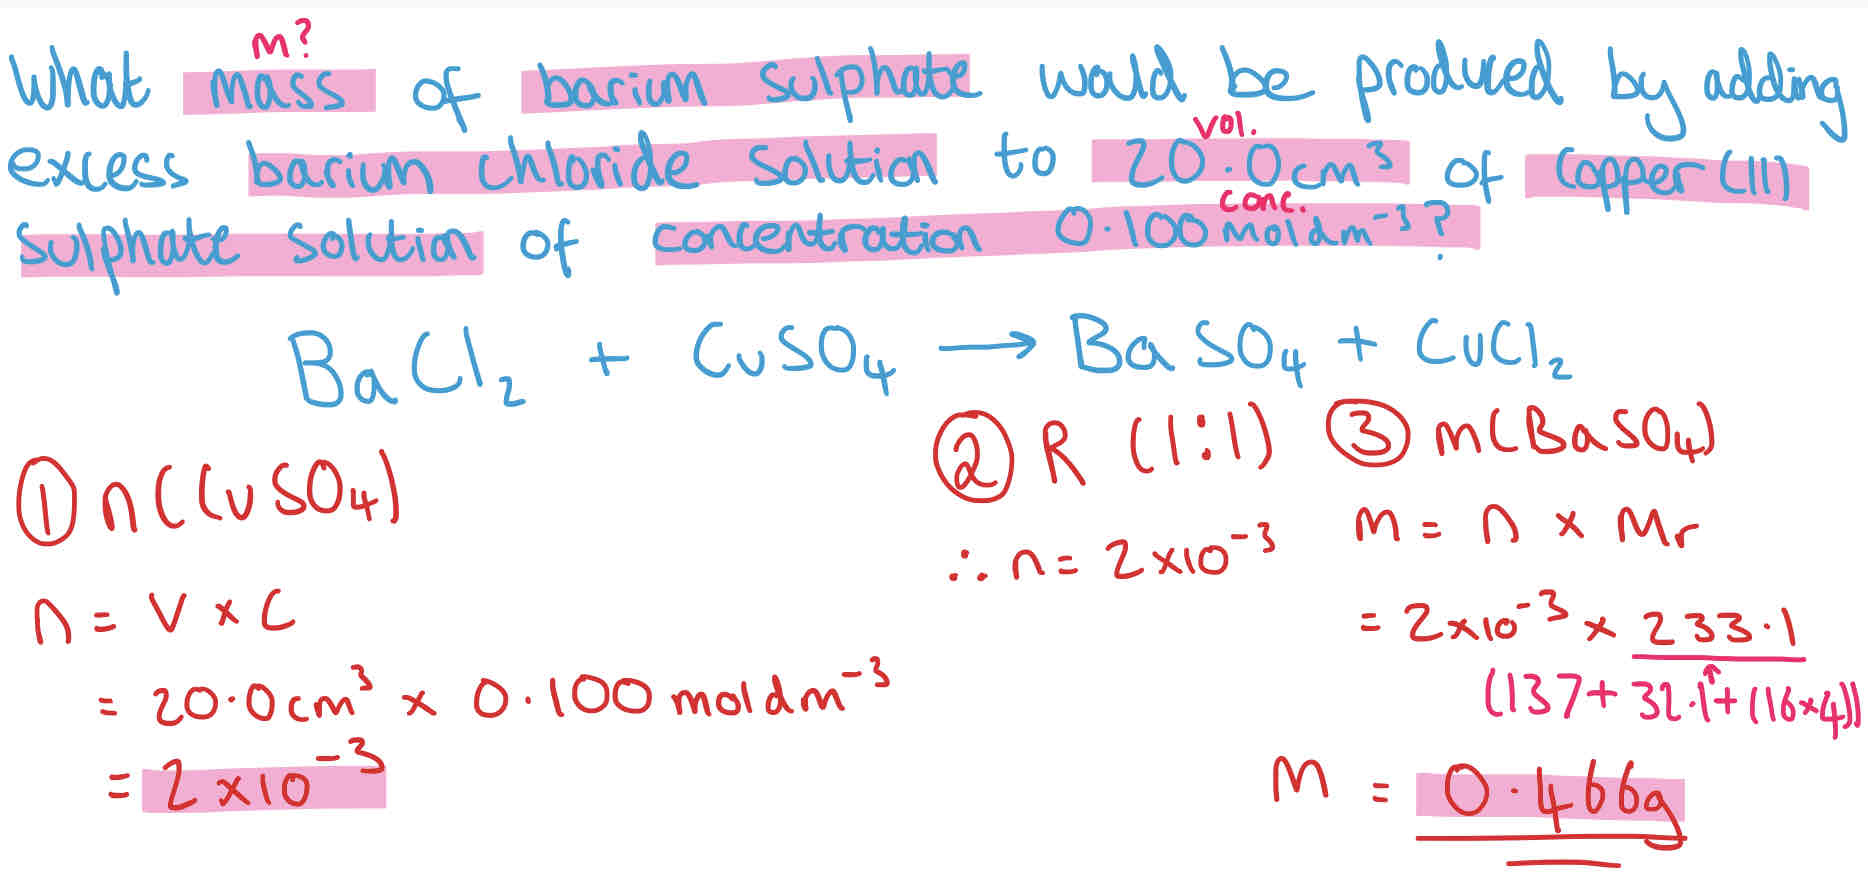 m?
What mass of barium sulphate would be produced by adding
vol.
excess barium chloride solution to 20.0cm³ of copper(II)
conc.
sulphate solution of concentration 0.100 moldm⁻³?
BaCl₂ + CuSO₄ → BaSO₄ + CuCl₂
① n(CuSO₄)
n = V × C
= 20.0cm³ × 0.100 moldm⁻³
= 2×10⁻³
② R (1:1)
∴ n = 2×10⁻³
③ m(BaSO₄)
m = n × Mr
= 2×10⁻³ × 233.1
↑
(137 + 32.1 + (16×4))
m = 0.466g